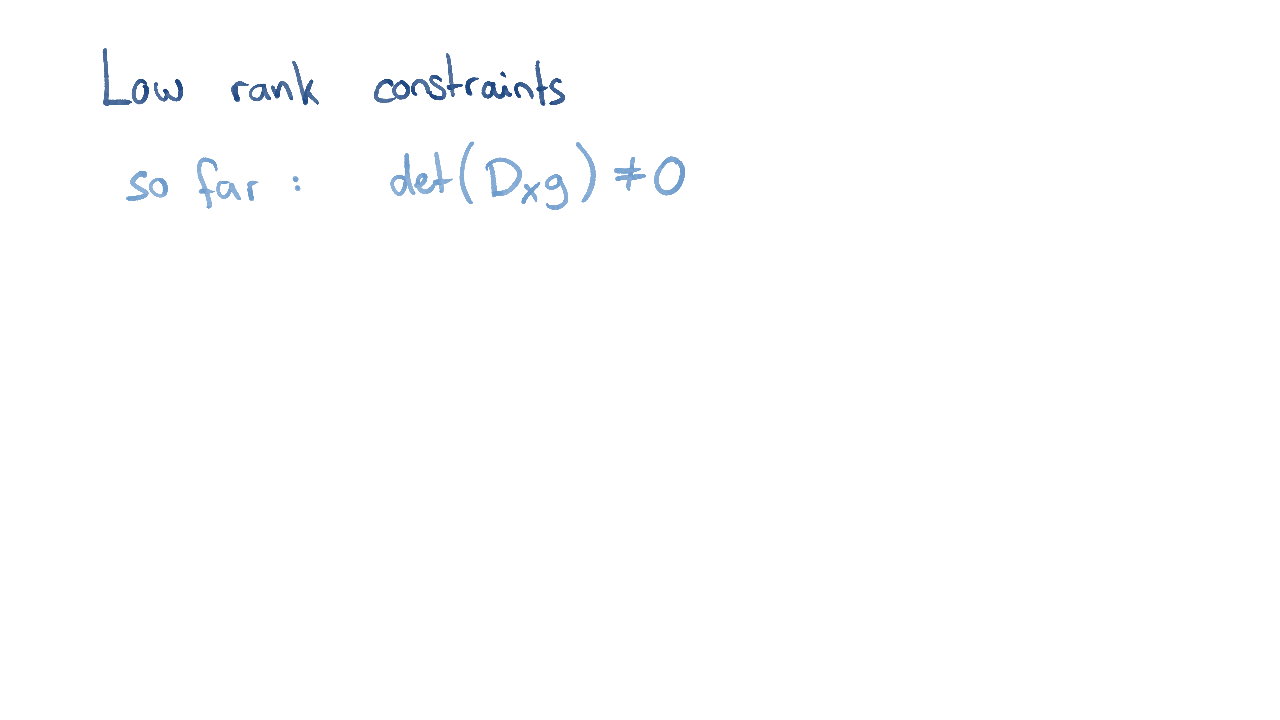 Low rank constraints
so far : det(Dₓg) ≠ 0